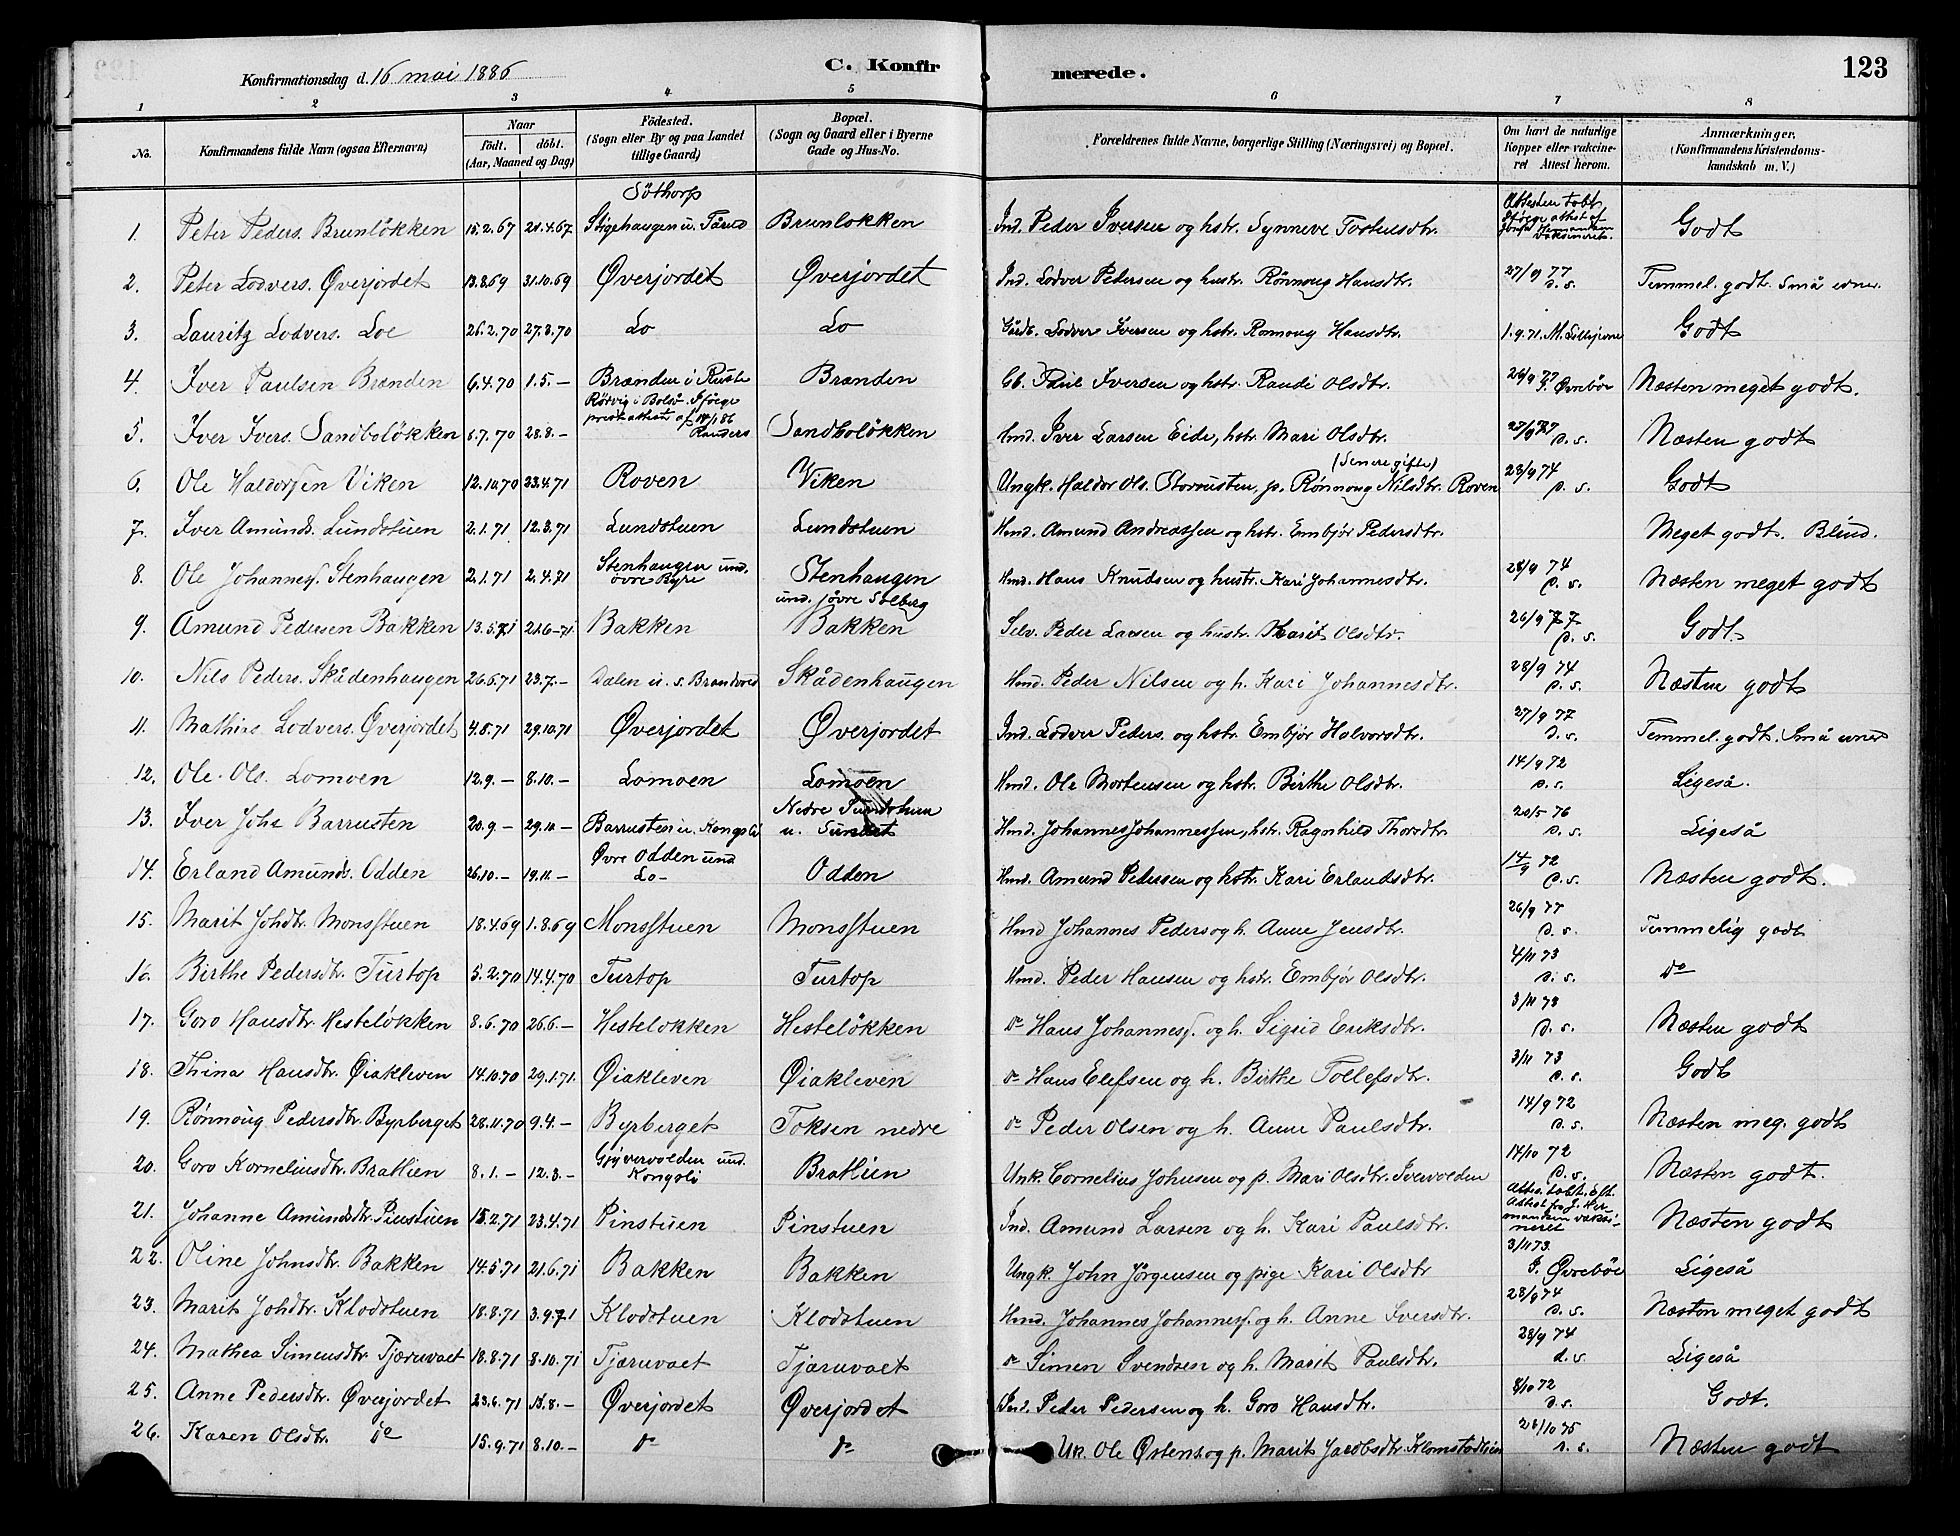 Konfirmationsdag d. 16 mai 1886 C. Konfirmerede. 123
1 2 3 4 5 6 7 8
No. Konfirmandens fulde Navn (ogsaa Efternavn) Naar födt. döbt. (Aar, Maaned og Dag) Födested. (Sogn eller By og paa Landet tillige Gaard) Bopæl. (Sogn og Gaard eller i Byerne Gade og Hus-No. Forældrenes fulde Navne, borgerlige Stilling (Næringsvei) og Bopæl. Om havt de naturlige Kopper eller vakcineret Attest herom. Anmærkninger. (Konfirmandens Kristendomskundskab m. V.)
1. Peter Peders. Brunlökken 15.2.67 21.4.67 Söthorp Brunlokken Ind. Peder Iversen og hstr. Synneve Tostensdtr. Attesten tabt Godt
2. Peter Lodvers. Øverjordet 13.8.69 31.10.69 Øverjordet Øverjordet Ind. Lodver Pedersen og hustr. Rönnoug Hansdtr. 27/9 77 d. s. Temmel. godt. Små evner.
3. Lauritz Lodvers. Loe 26.2.70 27.3.70 Lo Lo Gårdb. Lodver Iversen og hstr. Romoug Hansdtr. 1.9.71. M. Godt
4. Iver Paulsen Brænden 6.4.70 1.5.- Brænden i Ruste Brænden Gb. Paul Iversen og hstr. Randi Olsdtr. 26/9 77 J. Øvreböe Næsten meget godt.
5. Iver Ivers. Sandbolökken 5.7.70 28.8.- Rörvig i Bolsö. Iföege prest attest af Randers Sandbolökken Hmd. Iver Larsen Eide, hstr. Mari Olsdtr. 27/9 77 d. s. Næsten godt
6. Ole Haldorsen Viken 12.10.70 23.4.71 Roven Viken Ungk. Haldor Ols. Storrusten, p. Rönnoug Nilsdtr. Roven (senere gifte) 28/9 74 d. s. Godt
7. Iver Amunds. Lundstuen 2.1.71 12.3.71 Lundstuen Lundstuen Hmd. Amund Andreassen og hstr. Embjör Pedersdtr. Meget godt. Blind.
8. Ole Johanness. Stenhaugen 2.1.71 2.4.71 Stenhaugen und. övre Byre Stenhaugen und. jövre Solberg Hmd. Hans Knudsen og hustr. Kari Johannesdtr. 28/9 74 d. s. Næsten meget godt
9. Amund Pedersen Bakken 13.5.71 21.6-71 Bakken Bakken Selv. Peder Larsen og hustr. Marit Olsdtr. 26/9 77 d. s. Godt.
10. Nils Peders. Skådenhaugen 26.6.71 23.7.- Dalen u. s. Brandvold Skådenhaugen Hmd. Peder Nilsen og h. Kari Johannesdtr. 28/9 74 d. s. Næsten godt
11. Mathias Lodvers. Øverjordet 4.8.71 29.10.71 Øverjordet Øverjordet Ind. Lodver Peders. og hstr. Embjör Halvorsdtr. 27/9 77 d. s. Temmel. godt. Små evner
12. Ole Ols. Lomoen 12.9.- 8.10.- Lomoen Lomoen Hmd. Ole Mortensen og hstr. Birthe Olsdtr. 14/9 72 d. s. Ligeså.
13. Iver Johs Barrusten 20.9.- 29.10.- Barrusten u. Kongsli Nedre Sundstuen u. Sundet Hmd. Johannes Johannessen, hstr. Ragnhild Thorsdtr. 20/5 76 d. s. Ligeså
14. Erland Amunds. Odden 26.10.- 19.11.- Øvre Odden und Lo- Odden Hmd. Amund Pedersen og hstr. Kari Erlandsdtr. 14/9 72 d. s. Næsten godt.
15. Marit Johdtr. Monsstuen 18.4.69 1.8.69 Monsstuen Monsstuen Hmd Johannes Peders og h. Anne Jensdtr. 26/9 77 d. s. Temmelig godt
16. Birthe Pedersdtr. Turtop 5.2.70 14.4.70 Turtop Turtop Hmd. Peder Hansen og hstr. Embjör Olsdtr. 4/11 73 d. s. do
17. Goro Hansdtr. Hestelökken 8.6.70 26.6.- Hestelokken Hestelökken do Hans Johanness. og h. Sigrid Eriksdtr. 3/11 73 d. s. Næsten godt
18. Thina Hansdtr. Øiakleven 14.10.70 29.1.71. Øiakleven Øiakleven do Hans Elefsen og h. Birthe Tollefsdtr. 3/11 73 d. s. Godt
19. Rönnoug Pedersdtr. Byrberget 28.11.70 9.4.- Byrberget Toksen nedre do Peder Olsen og h. Anne Paulsdtr. 14/9 72 d. s. Næsten meg. godt
20. Goro Korneliusdtr. Bratlien 8.1.- 12.3.- und. Kongsli Bratlien Unk. Cornelius Johnsen og p. Mari Olsdtr. Iversvolden 14/10 72 d. s. Næsten godt.
21. Johanne Amundsdtr. Pinstuen 15.2.71 23.4.71 Pinstuen Pinstuen Ind. Amund Larsen og h. Kari Paulsdtr. Attes. tabt. Eft. Attest fra J. Hermandsen vaksineret Næsten godt
22. Oline Johnsdtr. Bakken 14.5.71 21.6.71 Bakken Bakken Ungk. John Jörgensen og pige Kari Olsdtr 3/11 73. J. Øvreböe Ligeså
23. Marit Johdtr. Klodstuen 18.8.71 3.9.71 Klodstuen Klodstuen Hmd. Johannes Johanness. og h. Anne Iversdtr. 28/9 74 d. s. Næsten meget godt
24. Mathea Simensdtr. Tjæruvaet 18.8.71 8.10.71 Tjæruvaet Tjæruvaet do Simen Svendsen og h. Marit Paulsdtr. 28/9 74 d. s. Ligeså
25. Anne Pedersdtr. Øverjordet 23.6.71 15.8.- Øverjordet Øverjordet Ind. Peder Pedersen og h. Goro Hansdtr. 8/10 72 d. s. Godt.
26. Karen Olsdtr. do 15.9.71 8.10.- do do Uk. Ole Østens. og p. Marit Jacobsdtr. Klomstadlien 28/10 75 d. s. Næsten godt